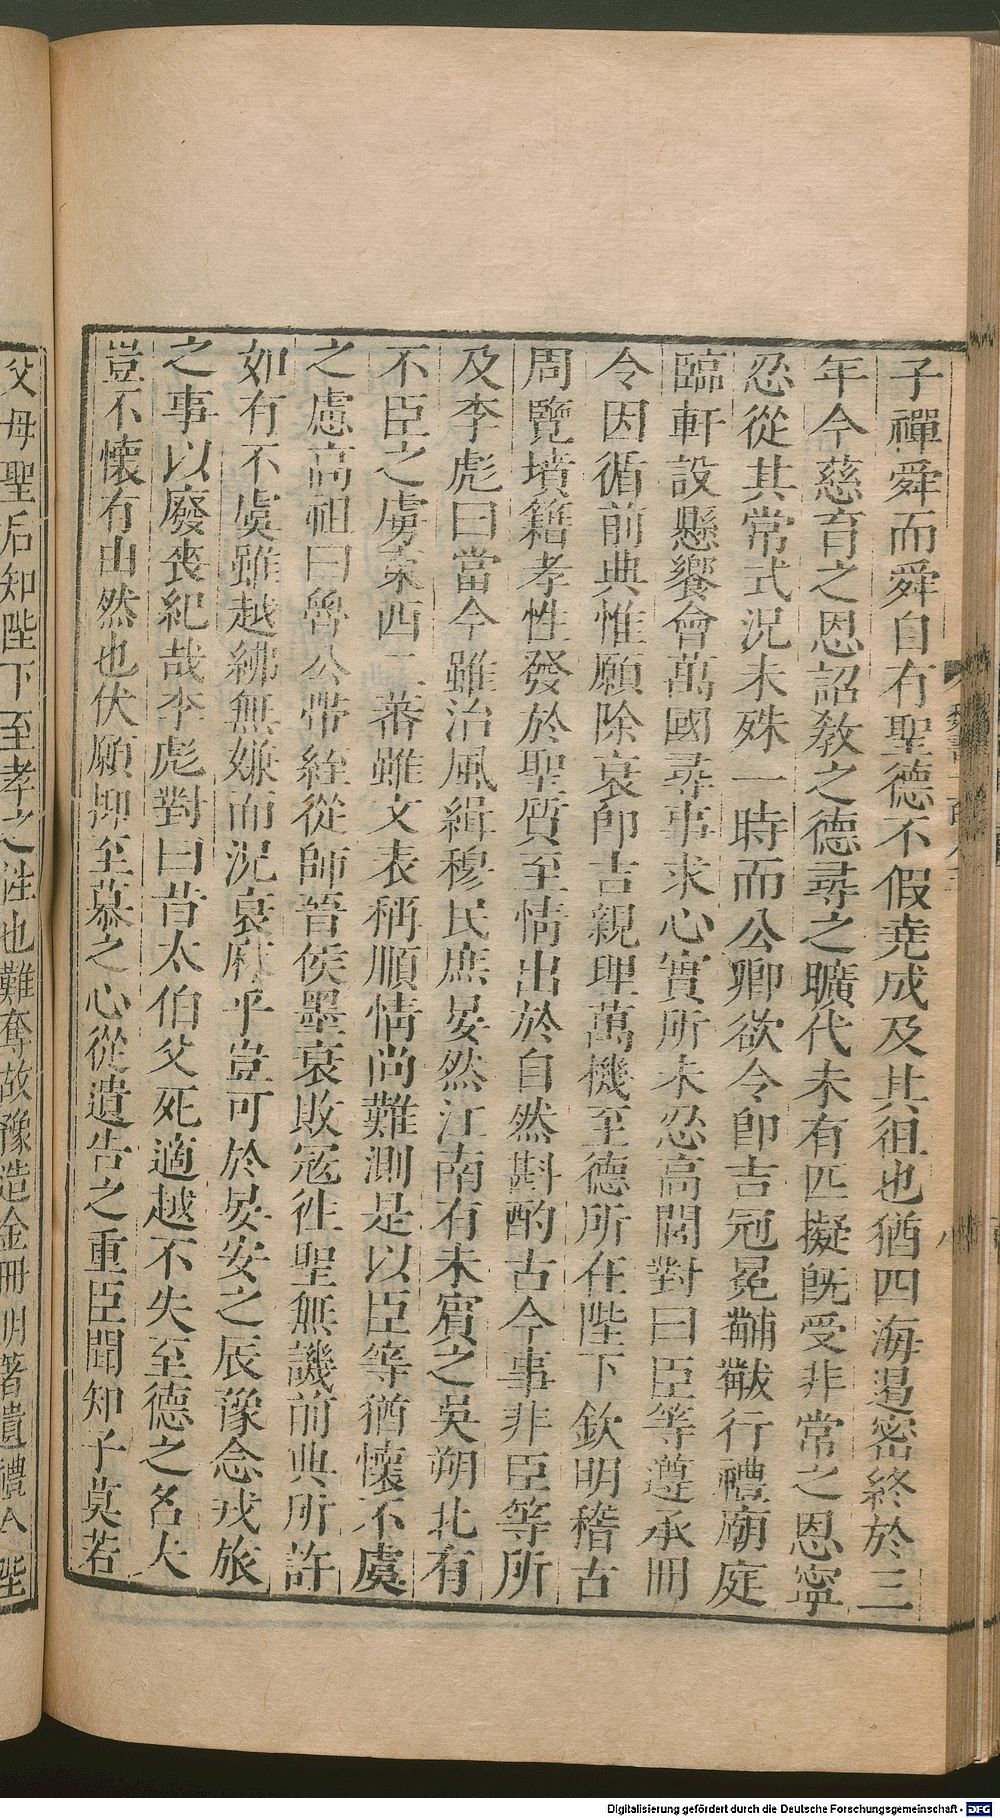 子禪舜而舜自有聖德不假堯成及其徂也猶四海遏密終於三
年今慈育之恩詔敎之德尋之曠代未有匹擬旣受非常之恩寧
忍從其常式況未殊一時而公卿欲令卽吉冠冕黼黻行禮廟庭
臨軒設懸饗會萬國尋事求心實所未忍高閭對曰臣等遵承冊
令因循前典惟願除哀卽吉親理萬機至德所在陛下欽明稽古
周覽墳籍孝性發於聖質至情出於自然斟酌古今事非臣等所
及李彪曰當今雖治風緝穆民庶晏然江南有未賓之吳朔北有
不臣之虜東西二蕃雖文表稱順情尚難測是以臣等猶懷不虞
之慮高祖曰魯公帶絰從師晉侯墨衰敗寇往聖無譏前典所許
如有不虞雖越紼無嫌而況衰麻乎豈可於晏安之辰豫念戎旅
之事以廢喪紀哉李彪對曰昔太伯父死適越不失至德之名夫
豈不懷有由然也伏願抑至慕之心從遺告之重臣聞知子莫若
父母聖后知陛下至孝之性也難奪故豫造金冊明著遺禮今陛
Digitalisierung gefördert durch die Deutsche Forschungsgemeinschaft - DFG